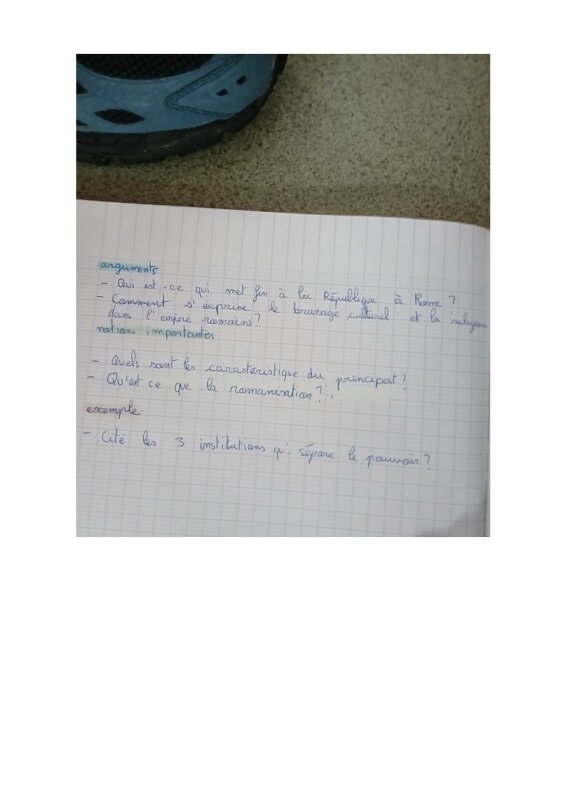 arguments
- Qui est-ce qui met fin à la République à Rome ?
- Comment s'exprime le brassage culturel et la religion
dans l'empire romains ?
notions importantes
- Quels sont les caractéristique du principat ?
- Qu'est ce que la romanisation ? .
exemple
- Cité les 3 institutions qui sépare le pouvoir ?